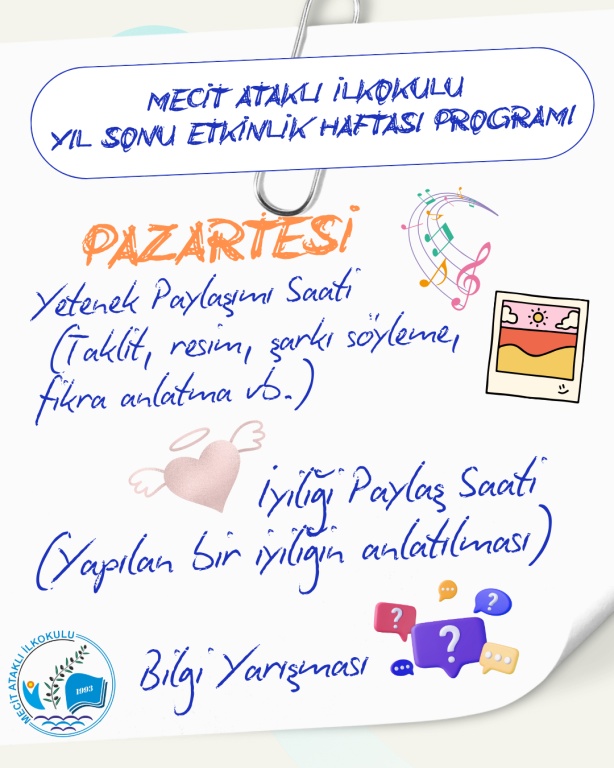 MECİT ATAKLI İLKOKULU
YIL SONU ETKİNLİK HAFTASI PROGRAMI
PAZARTESİ
Yetenek Paylaşımı Saati
(Taklit, resim, şarkı söyleme,
fıkra anlatma vb.)
İyiliği Paylaş Saati
(Yapılan bir iyiliğin anlatılması)
Bilgi Yarışması
MECİT ATAKLI İLKOKULU
1993